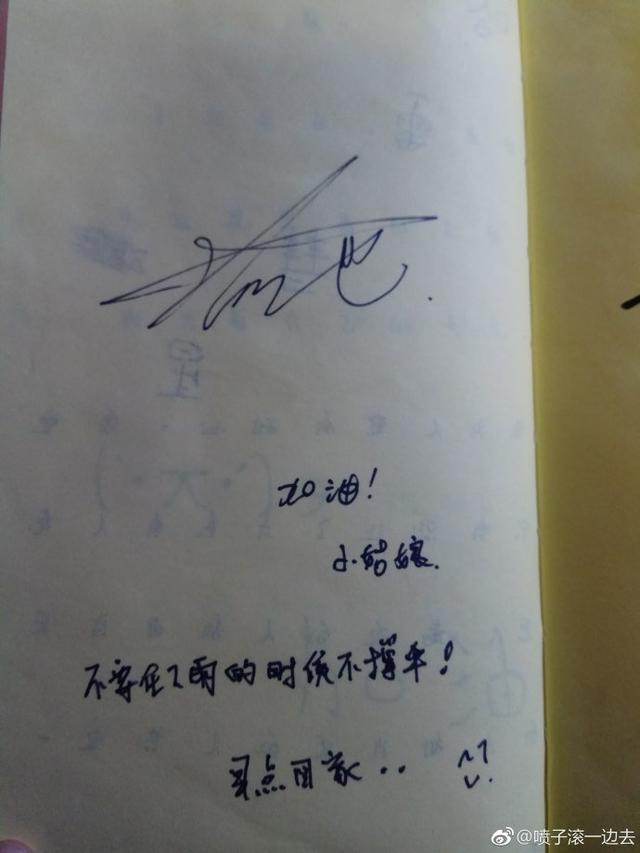 加油!
小姑娘.
不要在下雨的时候不撑伞!
早点回家..
@喷子滚一边去